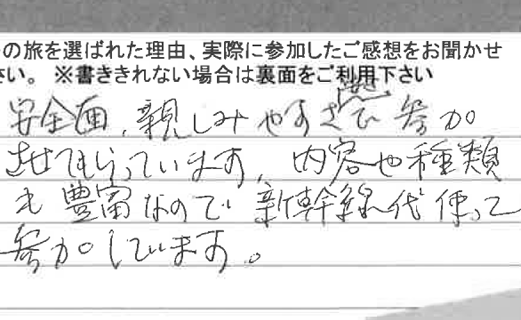 の旅を選ばれた理由、実際に参加したご感想をお聞かせ
さい。 ※書ききれない場合は裏面をご利用下さい
安全面、親しみやすさで 参加
させてもらっています。内容や種類
も 豊富なので 新幹線代 使って
参加しています。